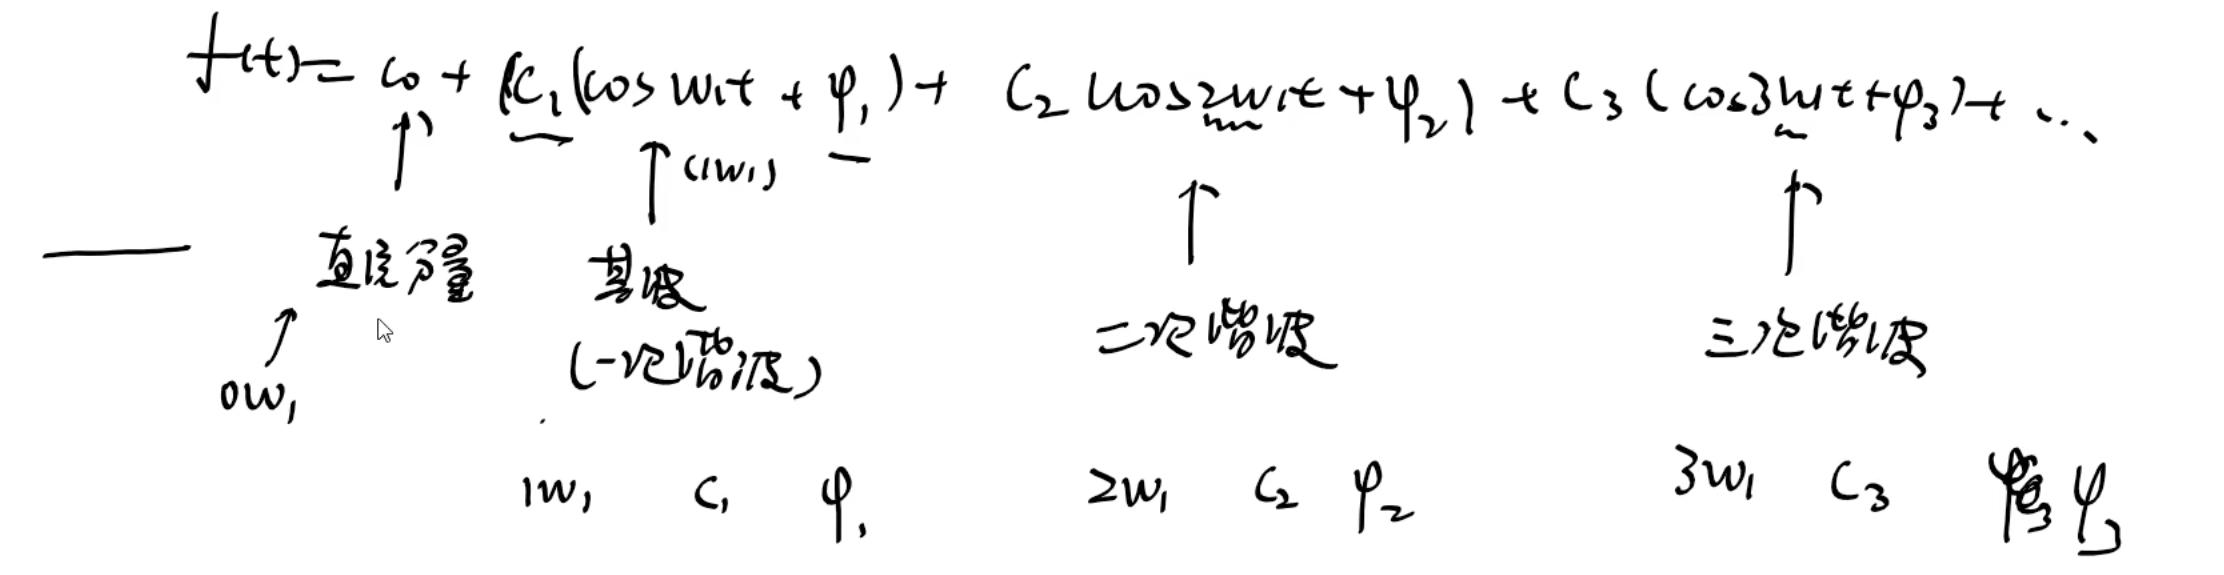 f(t)= c₀ + (C₁(cos w₁t + φ₁)+ C₂(cos2w₁t+φ₂) + C₃(cos3w₁t+φ₃)+ ...
(1w₁)
直流分量 基波
(一次谐波) 二次谐波 三次谐波
0w₁
1w₁ C₁ φ₁ 2w₁ C₂ φ₂ 3w₁ C₃ φ₃